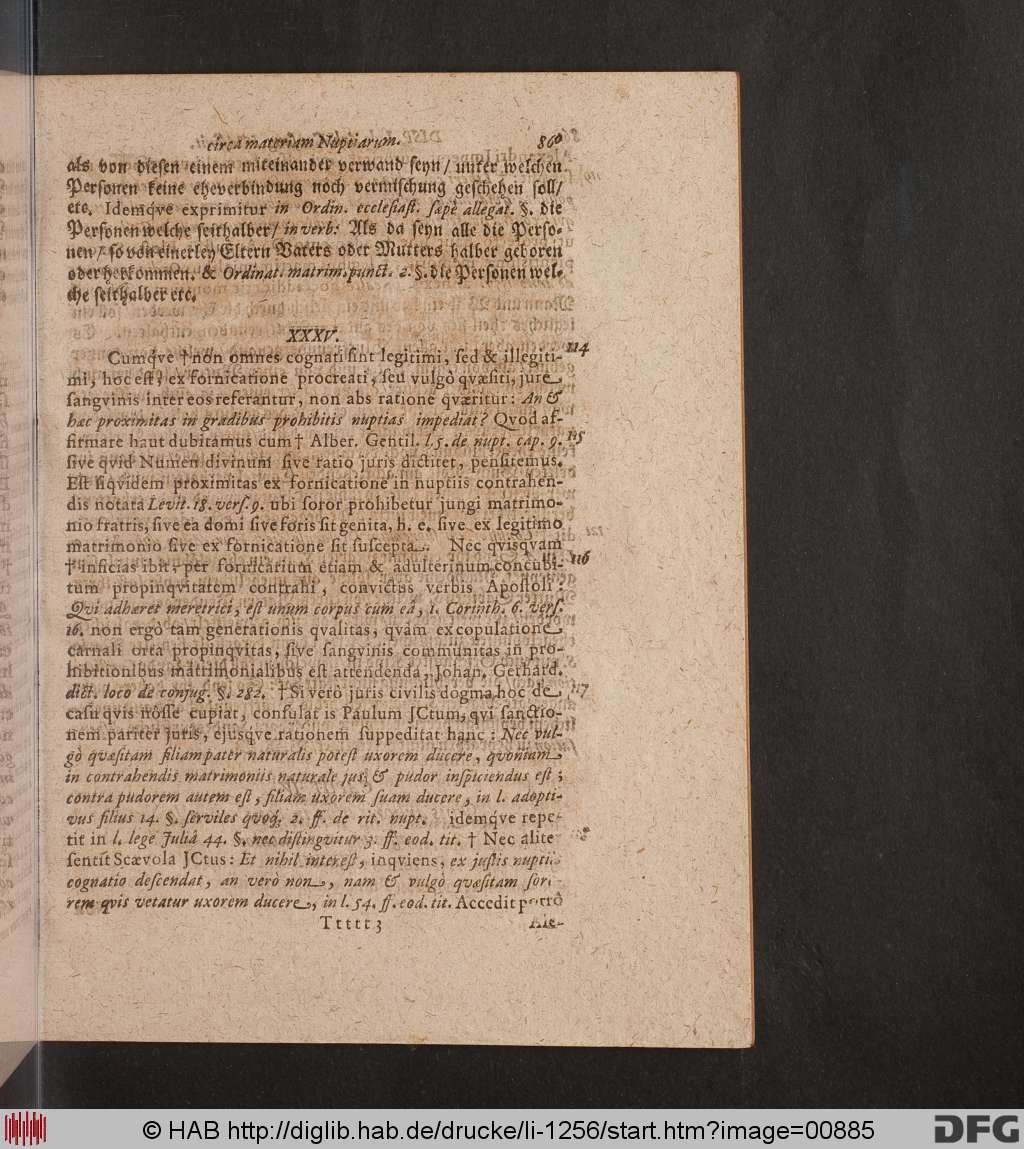 circa materiam Nuptiarum. 860
als von diesen einem miteinander verwand seyn/ unter welchen
Personen keine eheverbindung noch vermischung geschehen soll/
etc. Idemqve exprimitur in Ordin. ecclesiast. sæpè allegat. §. die
Personen welche seithalber/ in verb: Als da seyn alle die Perso-
nen/ so von einerley Eltern Vaters oder Mutters halber geboren
oder herkommen. & Ordinat. matrim. punct. 2. §. die Personen wel-
che seithalber etc.
XXXV.
Cumqve † non omnes cognati sint legitimi, sed & illegiti- 114
mi, hoc est, ex fornicatione procreati, seu vulgò qvæsiti, jure
sangvinis inter eos referantur, non abs ratione qværitur: An &
hæc proximitas in gradibus prohibitis nuptias impediat? Qvod af-
firmare haut dubitamus cum † Alber. Gentil. l. 5. de nupt. cap. 9. 115
sive qvid Numen divinum sive ratio juris dictitet, pensitemus.
Est siqvidem proximitas ex fornicatione in nuptiis contrahen-
dis notata Levit. 18. vers. 9. ubi soror prohibetur jungi matrimo-
nio fratris, sive ea domi sive foris sit genita, h. e. sive ex legitimo
matrimonio sive ex fornicatione sit suscepta. Nec qvisqvam
† inficias ibit, per fornicarium etiam & adulterinum concubi- 116
tum propinqvitatem contrahi, convictus verbis Apostoli:
Qvi adhæret meretrici, est unum corpus cum eâ, 1. Corinth. 6. vers.
16. non ergò tam generationis qvalitas, qvàm ex copulatione
carnali orta propinqvitas, sive sangvinis communitas in pro-
hibitionibus matrimonialibus est attendenda, Johan. Gerhard.
dict. loco de conjug. §. 282. † Si verò juris civilis dogma hoc de 117
casu qvis nôsse cupiat, consulat is Paulum JCtum, qvi sanctio-
nem pariter juris, ejusqve rationem suppeditat hanc: Nec vul-
gò qvæsitam filiam pater naturalis potest uxorem ducere, qvoniam
in contrahendis matrimoniis naturale jus & pudor inspiciendus est;
contra pudorem autem est, filiam uxorem suam ducere, in l. adopti-
vus filius 14. §. serviles qvoq; 2. ff. de rit. nupt. idemqve repe-
tit in l. lege Juliâ 44. §. nec distingvitur 3. ff. eod. tit. † Nec alite
sentit Scævola JCtus: Et nihil interest, inqviens, ex justis nuptiis
cognatio descendat, an verò non, nam & vulgò qvæsitam soro-
rem qvis vetatur uxorem ducere, in l. 54. ff. eod. tit. Accedit porrò
Ttttt 3 Ale-
© HAB http://diglib.hab.de/drucke/li-1256/start.htm?image=00885
DFG